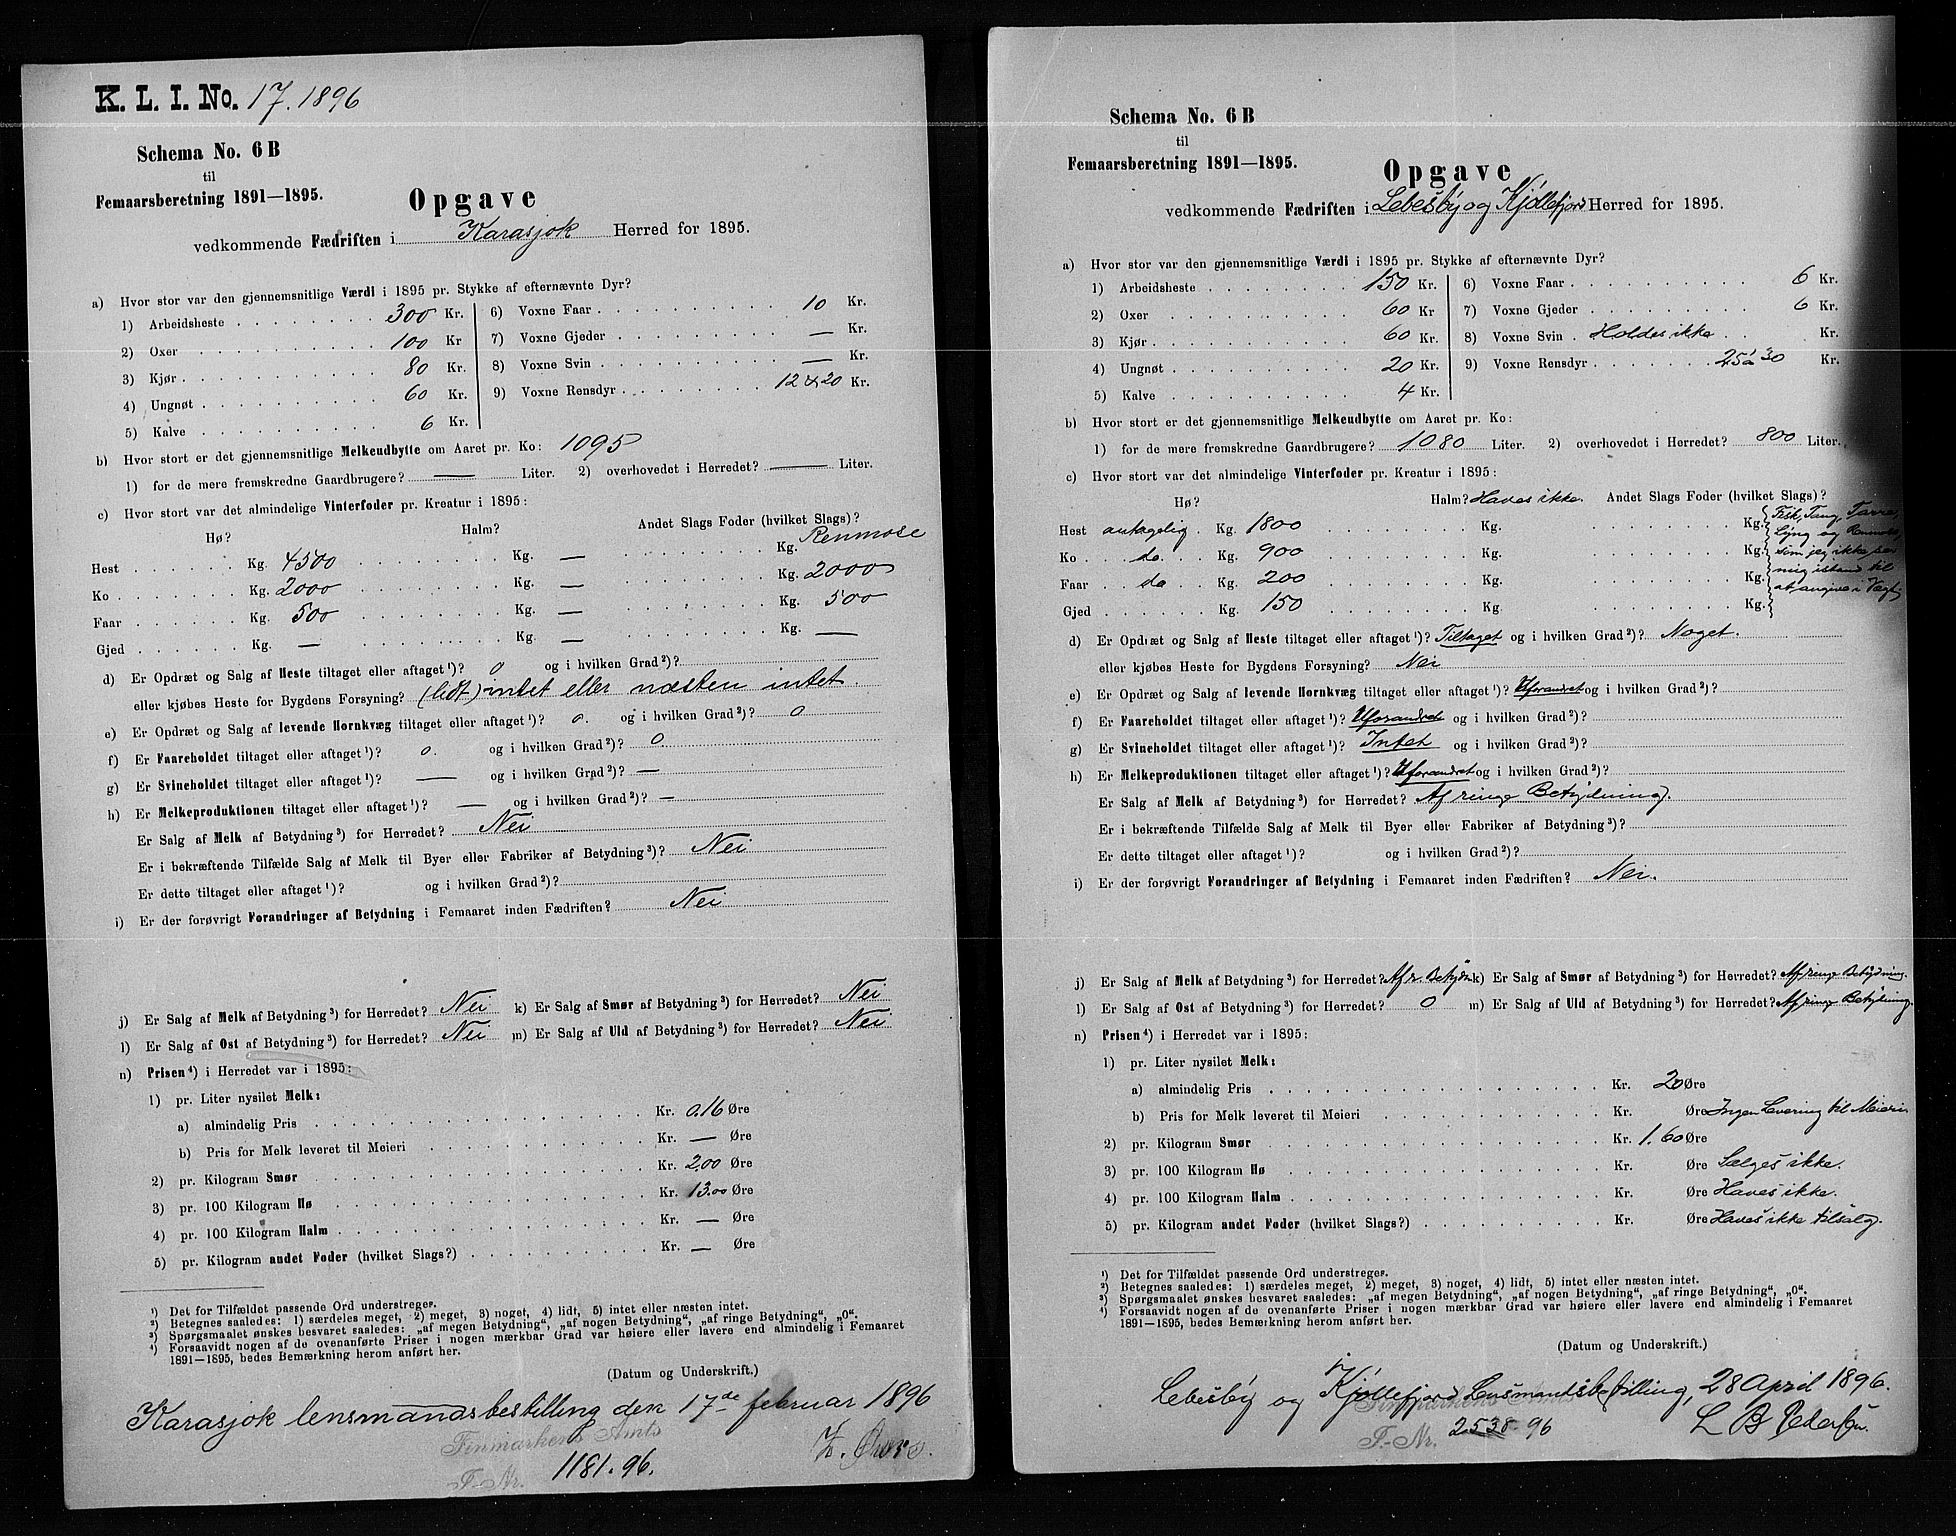 K. L. I. No. 17. 1896
Schema No. 6 B
til
Femaarsberetning 1891—1895.
Opgave
vedkommende Fædriften i Karasjok Herred for 1895.
a) Hvor stor var den gjennemsnitlige Værdi i 1895 pr. Stykke af efternævnte Dyr?
1) Arbeidsheste 300 Kr.
2) Oxer 100 Kr
3) Kjør 80 Kr.
4) Ungnøt 60 Kr.
5) Kalve 6 Kr.
6) Voxne Faar 10 Kr.
7) Voxne Gjeder — Kr.
8) Voxne Svin — Kr.
9) Voxne Rensdyr 12 à 20 Kr.
b) Hvor stort er det gjennemsnitlige Melkeudbytte om Aaret pr. Ko: 1095
1) for de mere fremskredne Gaardbrugere? — Liter. 2) overhovedet i Herredet? — Liter.
c) Hvor stort var det almindelige Vinterfoder pr. Kreatur i 1895:
Hø? Halm? Andet Slags Foder (hvilket Slags)?
Hest Kg. 4500 Kg. — Kg. Renmose
Ko Kg. 2000 Kg. — Kg. 2000
Faar Kg. 500 Kg. — Kg. 500
Gjed Kg. — Kg. — Kg. —
d) Er Opdræt og Salg af Heste tiltaget eller aftaget¹)? 0 og i hvilken Grad²)?
eller kjøbes Heste for Bygdens Forsyning? (lidt) intet eller næsten intet.
e) Er Opdræt og Salg af levende Hornkvæg tiltaget eller aftaget¹)? 0. og i hvilken Grad²)? 0
f) Er Faareholdet tiltaget eller aftaget¹)? 0. og i hvilken Grad²)? 0.
g) Er Svineholdet tiltaget eller aftaget¹)? — og i hvilken Grad²)? —
h) Er Melkeproduktionen tiltaget eller aftaget¹)? — og i hvilken Grad²)? —
Er Salg af Melk af Betydning³) for Herredet? Nei
Er i bekræftende Tilfælde Salg af Melk til Byer eller Fabriker af Betydning³)? Nei
Er dette tiltaget eller aftaget¹)? og i hvilken Grad²)?
i) Er der forøvrigt Forandringer af Betydning i Femaaret inden Fædriften? Nei
j) Er Salg af Melk af Betydning³) for Herredet? Nei k) Er Salg af Smør af Betydning³) for Herredet? Nei
l) Er Salg af Ost af Betydning³) for Herredet? Nei m) Er Salg af Uld af Betydning³) for Herredet? Nei
n) Prisen⁴) i Herredet var i 1895:
1) pr. Liter nysilet Melk:
a) almindelig Pris Kr. 0.16 Øre
b) Pris for Melk leveret til Meieri Kr. — Øre
2) pr. Kilogram Smør Kr. 2,00 Øre
3) pr. 100 Kilogram Hø Kr. 13.00 Øre
4) pr. 100 Kilogram Halm Kr. — Øre
5) pr. Kilogram andet Foder (hvilket Slags?) Kr. — Øre
¹) Det for Tilfældet passende Ord understreges.
²) Betegnes saaledes: 1) særdeles meget, 2) meget, 3) noget, 4) lidt, 5) intet eller næsten intet.
³) Spørgsmaalet ønskes besvaret saaledes: „af megen Betydning“, „af nogen Betydning“, „af ringe Betydning“, „0“.
⁴) Forsaavidt nogen af de ovenanførte Priser i nogen mærkbar Grad var høiere eller lavere end almindelig i Femaaret
1891—1895, bedes Bemærkning herom anført her.
(Datum og Underskrift.)
Karasjok lensmandsbestilling den 17de februar 1896
Finmarkens Amts
F.-Nr. 1181.96.
Schema No. 6 B
til
Femaarsberetning 1891—1895.
Opgave
vedkommende Fædriften i Lebesby og Kjöllefjord Herred for 1895.
a) Hvor stor var den gjennemsnitlige Værdi i 1895 pr. Stykke af efternævnte Dyr?
1) Arbeidsheste 150 Kr.
2) Oxer 60 Kr
3) Kjør 60 Kr.
4) Ungnøt 20 Kr.
5) Kalve 4 Kr.
6) Voxne Faar 6 Kr.
7) Voxne Gjeder 6 Kr.
8) Voxne Svin Holdes ikke Kr.
9) Voxne Rensdyr 25 à 30 Kr.
b) Hvor stort er det gjennemsnitlige Melkeudbytte om Aaret pr. Ko:
1) for de mere fremskredne Gaardbrugere? 1080 Liter. 2) overhovedet i Herredet? 800 Liter.
c) Hvor stort var det almindelige Vinterfoder pr. Kreatur i 1895:
Hø? Halm? Haves ikke. Andet Slags Foder (hvilket Slags)?
Hest antagelig Kg. 1800 Kg. Kg. Fisk, Tang, Tarre,
Ko do. Kg. 900 Kg. Kg. Lyng og Renmose,
som jeg ikke ser
Faar do Kg. 200 Kg. Kg. mig istand til
Gjed Kg. 150 Kg. Kg. at angive i Vægt
d) Er Opdræt og Salg af Heste tiltaget eller aftaget¹)? Tiltaget og i hvilken Grad²)? Noget.
eller kjøbes Heste for Bygdens Forsyning? Nei
e) Er Opdræt og Salg af levende Hornkvæg tiltaget eller aftaget¹)? Uforandret og i hvilken Grad²)?
f) Er Faareholdet tiltaget eller aftaget¹)? Uforandret og i hvilken Grad²)?
g) Er Svineholdet tiltaget eller aftaget¹)? Intet og i hvilken Grad²)?
h) Er Melkeproduktionen tiltaget eller aftaget¹)? Uforandret og i hvilken Grad²)?
Er Salg af Melk af Betydning³) for Herredet? Af ringe Betydning.
Er i bekræftende Tilfælde Salg af Melk til Byer eller Fabriker af Betydning³)?
Er dette tiltaget eller aftaget¹)? og i hvilken Grad²)?
i) Er der forøvrigt Forandringer af Betydning i Femaaret inden Fædriften? Nei.
j) Er Salg af Melk af Betydning³) for Herredet? Af r. Betydn. k) Er Salg af Smør af Betydning³) for Herredet? Af ringe Betydning.
l) Er Salg af Ost af Betydning³) for Herredet? 0 m) Er Salg af Uld af Betydning³) for Herredet? Af ringe Betydning.
n) Prisen⁴) i Herredet var i 1895:
1) pr. Liter nysilet Melk:
a) almindelig Pris Kr. 20 Øre
b) Pris for Melk leveret til Meieri Kr. Øre Ingen Levering til Meieri
2) pr. Kilogram Smør Kr. 1. 60 Øre
3) pr. 100 Kilogram Hø Kr. Øre Sælges ikke.
4) pr. 100 Kilogram Halm Kr. Øre Haves ikke.
5) pr. Kilogram andet Foder (hvilket Slags?) Kr. Øre Haves ikke tilsalg.
¹) Det for Tilfældet passende Ord understreges.
²) Betegnes saaledes: 1) særdeles meget, 2) meget, 3) noget, 4) lidt, 5) intet eller næsten intet.
³) Spørgsmaalet ønskes besvaret saaledes: „af megen Betydning“, „af nogen Betydning“, „af ringe Betydning“, „0“.
⁴) Forsaavidt nogen af de ovenanførte Priser i nogen mærkbar Grad var høiere eller lavere end almindelig i Femaaret
1891—1895, bedes Bemærkning herom anført her.
(Datum og Underskrift.)
Lebesby og Kjöllefjord Lensmandsbestilling, 28 April 1896.
Finmarkens Amts
F.-Nr. 2538-96
L B Pedersen.